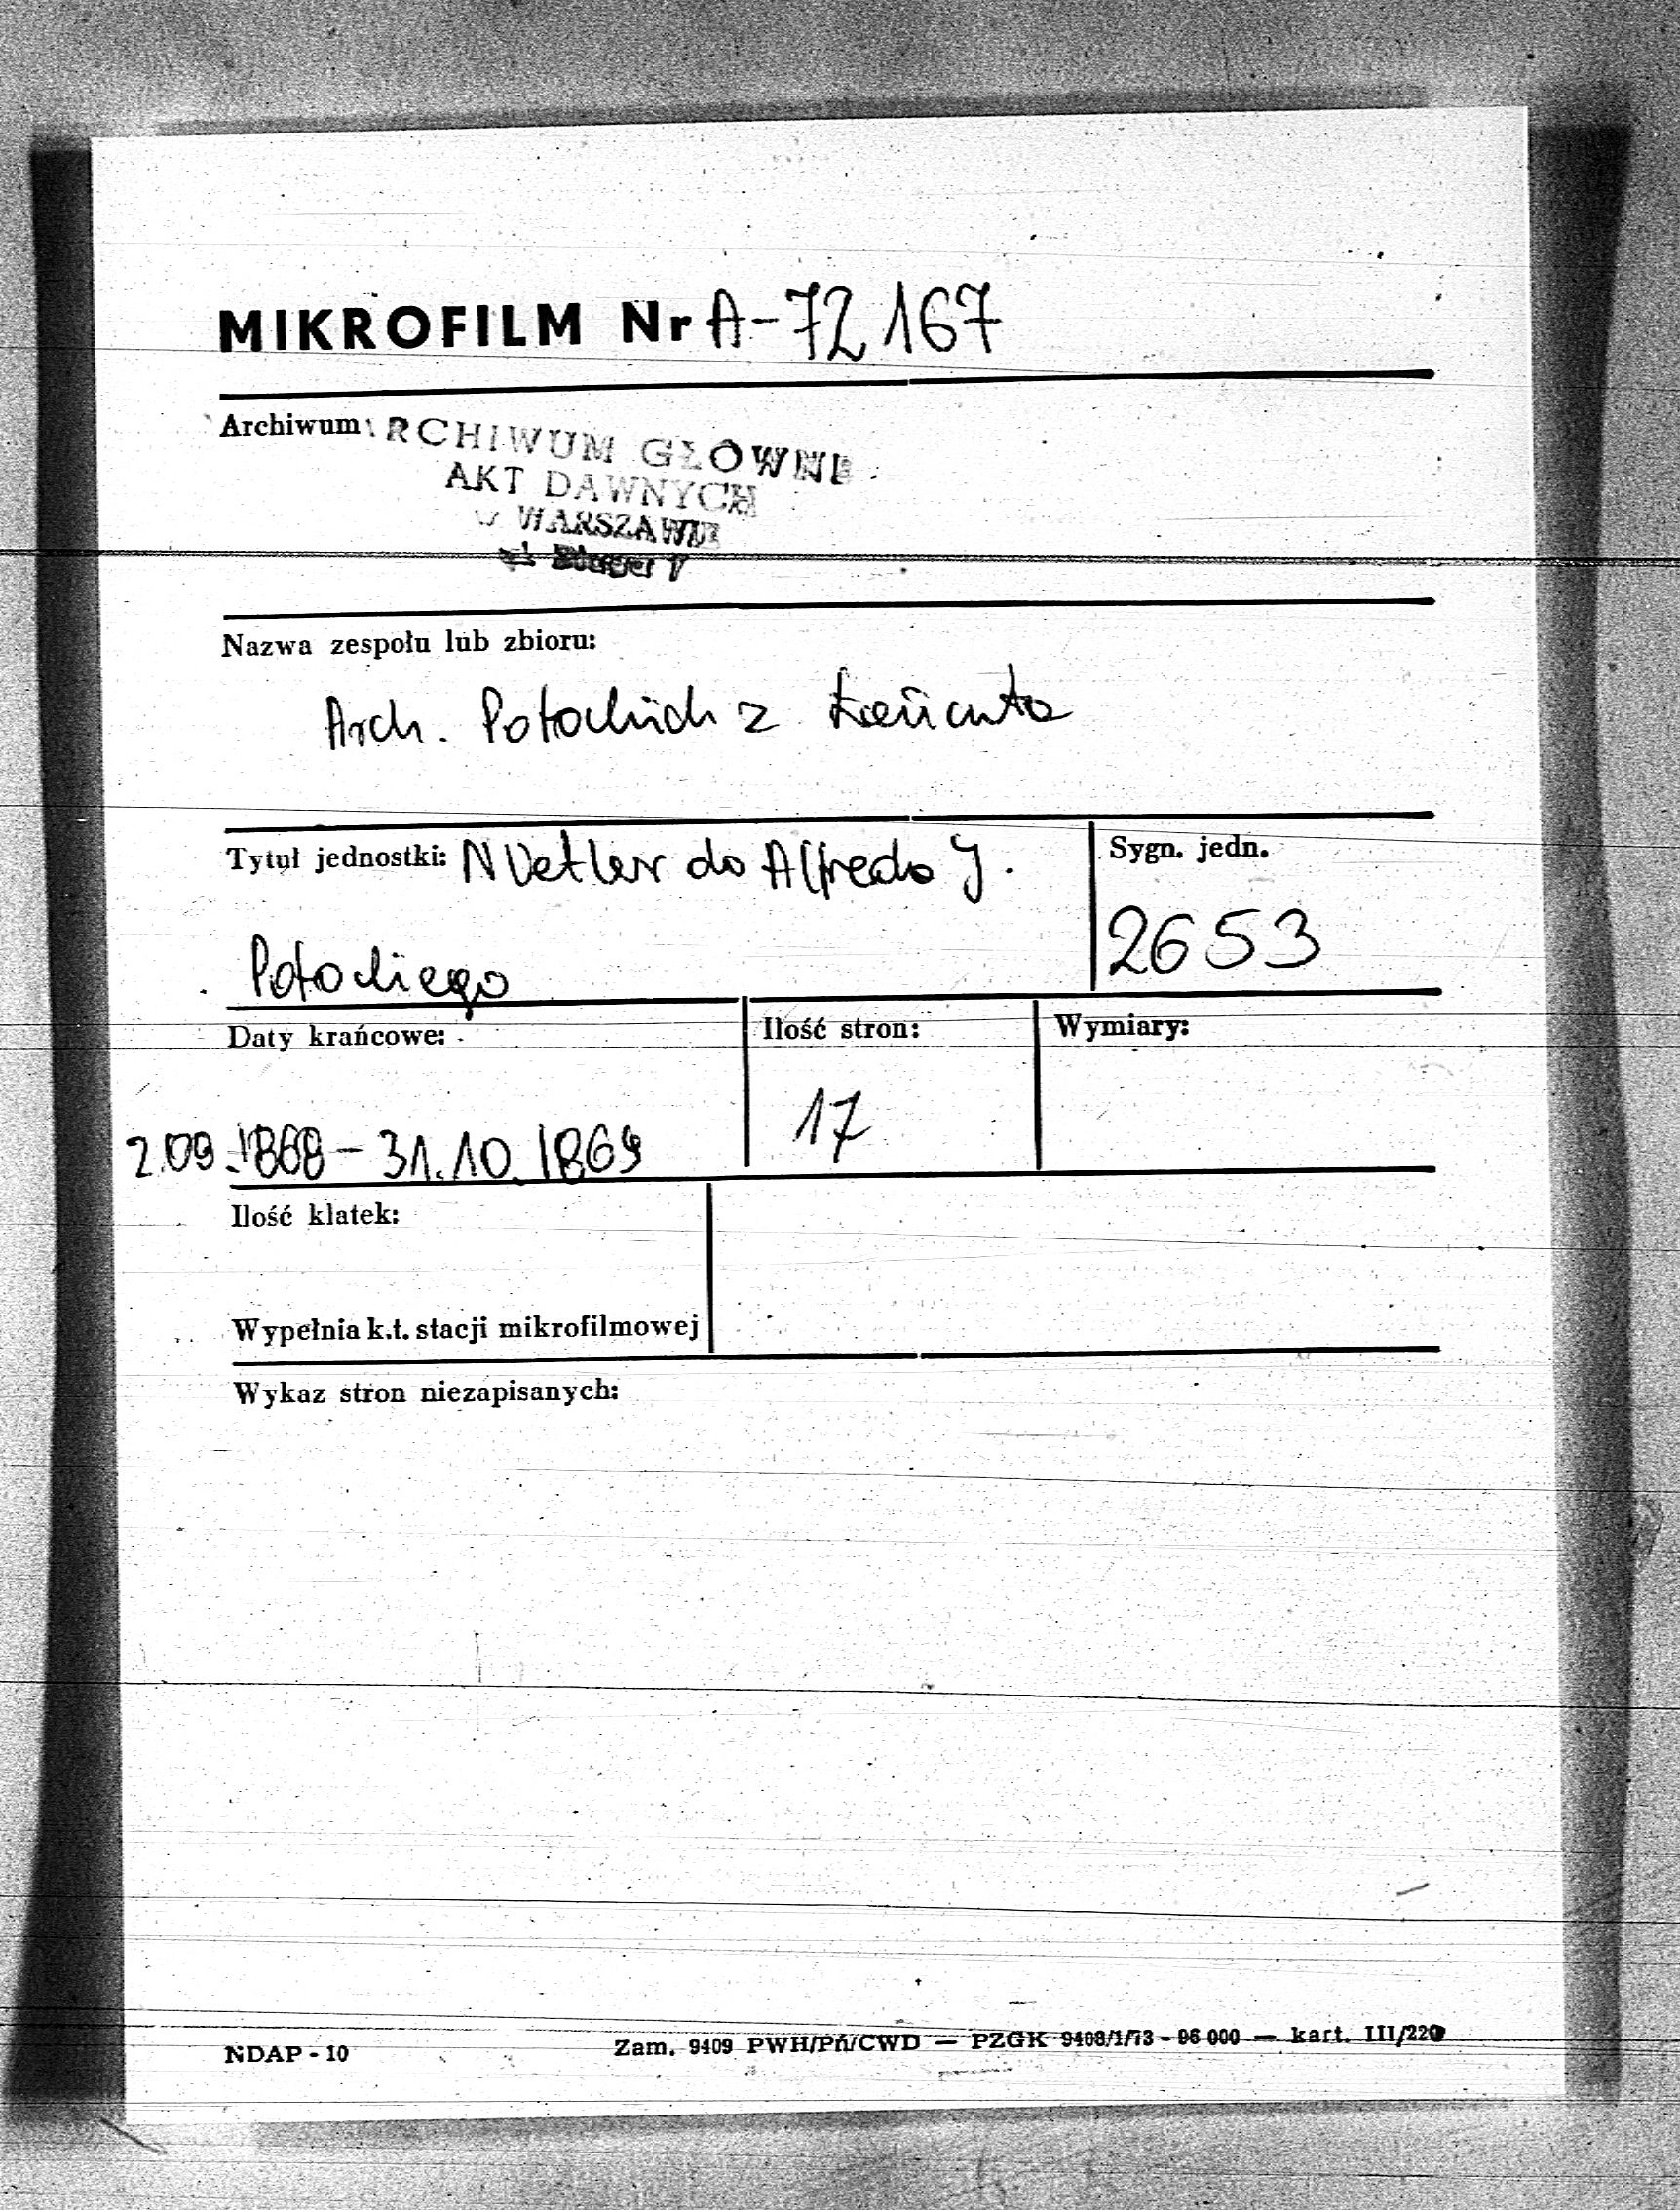 MIKROFILM Nr A-72167
Archiwum ARCHIWUM GŁÓWNE
AKT DAWNYCH
w WARSZAWIE
Nazwa zespołu lub zbioru:
Arch. Potockich z Łańcuta
Tytuł jednostki: N Vetler do Alfreda J.
Sygn. jedn.
Potockiego
2653
Daty krańcowe:
Ilość stron:
Wymiary:
2.09.1868 - 31.10.1869
17
Ilość klatek:
Wypełnia k.t. stacji mikrofilmowej
Wykaz stron niezapisanych:
NDAP - 10
Zam. 9409 PWH/Pń/CWD — PZGK 9408/1/73 - 96 000 — kart. III/220